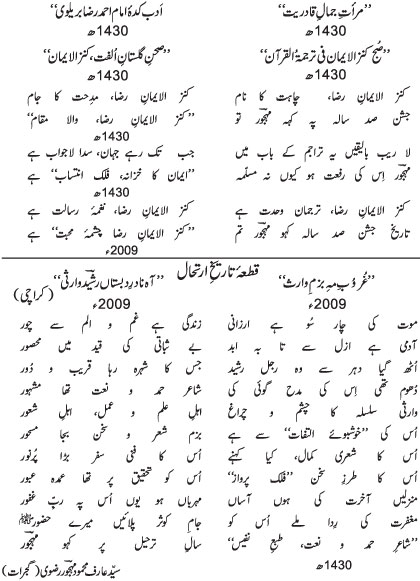 ”مرأتِ جمالِ قادریت“ ادب کدۂ امام احمد رضا بریلویؒ“
1430ھ 1430ھ
”صُبحِ کنز الایمان فی ترجمۃ القرآن“ ”صحنِ گلستانِ اُلفت، کنز الایمان“
1430ھ 1430ھ
کنز الایمانِ رضا، چاہت کا نام کنز الایمانِ رضا، مِدحت کا جام
جشنِ صد سالہ پہ کہہ مہجورؔ تو ”کنز الایمانِ رضا، والا مقام“
1430ھ
لا ریب بالیقیں یہ تراجم کے باب میں جب تک رہے جہان، سدا لاجواب ہے
مہجورؔ اِس کی رفعت ہو کیوں نہ مسلّمہ ”ایمان کا خزانہ، فلک انتساب“ ہے
1430ھ
کنز الایمانِ رضا، ترجمانِ وحدت ہے کنز الایمانِ رضا، نغمۂ رسالت ہے
تاریخِ جشنِ صد سالہ کہو مہجورؔ تم ”کنز الایمانِ رضا چشمۂ محبت“ ہے
2009ء
قطعۂ تاریخِ ارتحال
”غروبِ مہِ بزمِ وارث“ ”آہ نادرِ دبستاں رشیدؔ وارثی“ (کراچی)
2009ء 2009ء
موت کی چار سُو ہے ارزانی زندگی ہے غم و الم سے چور
آدمی ہے ازل سے تا بہ ابد بے ثباتی کی قید میں محصور
اُٹھ گیا دہر سے وہ رجلِ رشید جس کا شہرہ رہا قریب و دُور
دُھوم تھی اِس کی مدح گوئی کی شاعرِ حمد و نعت تھا مشہور
وارثی سلسلہ کا چشم و چراغ اہلِ علم و عمل، اہلِ شعور
اُس کی ”خوشبوئے التفات“ سے ہے بزمِ شعر و سخن بجا مسحور
اُس کا شعری کمال، کیا کہنے اُس کا فنی سفر بڑا پُرنور
اُس کا طرزِ سخن ”فلک پرواز“ اُس کو تحقیق پر تھا عمدہ عبور
منزلیں آخرت کی ہوں آساں مہرباں ہو یوں اُس پہ ربِّ غفور
مغفرت کی رِدا ملے اُس کو جامِ کوثر پلائیں میرے حضورؐ
”شاعرِ حمد و نعت، طبعِ نفیس“ سالِ ترحیل پر کہو مہجورؔ
1430ھ
سیّد عارف محمود مہجورؔ رضوی (گجرات)